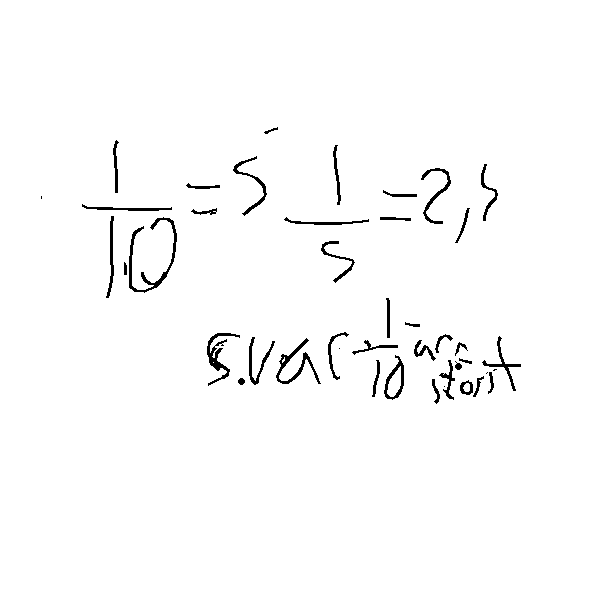 1/10 = 5 1/5 = 2,5
svar 1/10 är störst